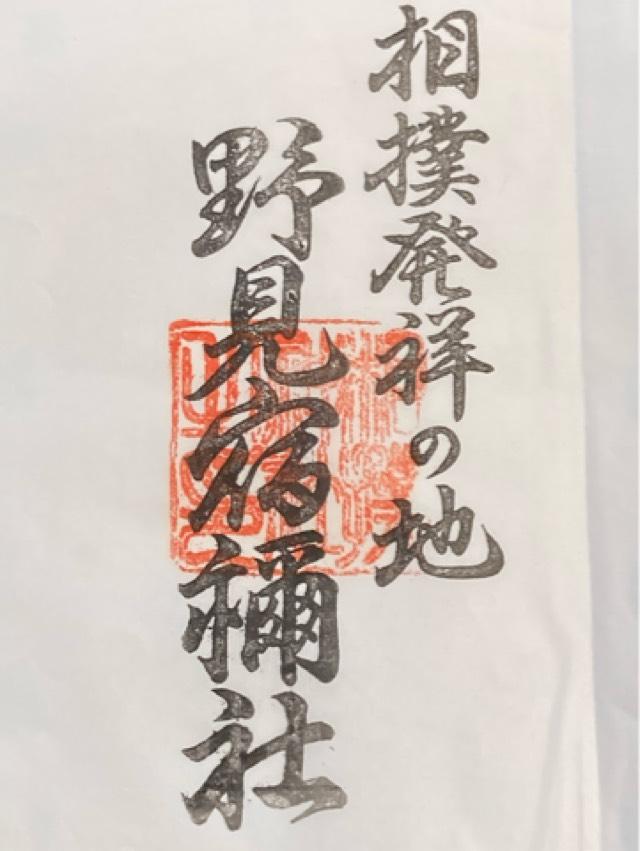 相撲発祥の地
野見宿禰社